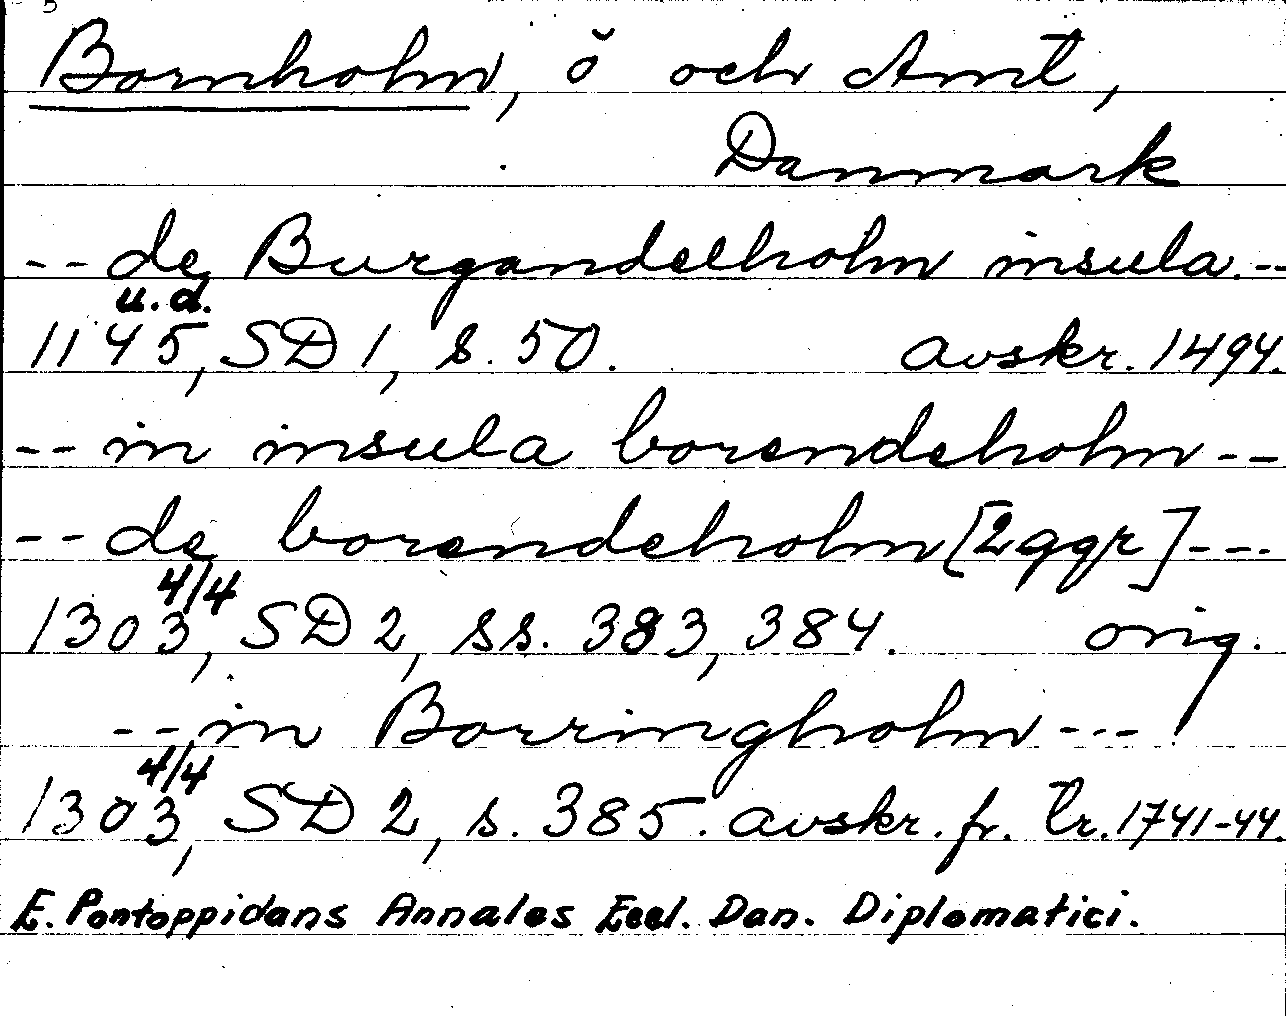 Bornholm, ö och Amt,
Danmark
-- de Burgandelholm insula --
u.d.
1145, SD 1, s. 50. avskr. 1494.
-- in insula borendeholm --
-- de borendeholm [2 ggr] ---
4/4
1303, SD 2, ss. 383, 384. orig.
-- in Borringholm ---
4/4
1303, SD 2, s. 385. avskr. fr. tr. 1741-44.
E. Pontoppidans Annales Eccl. Dan. Diplomatici.